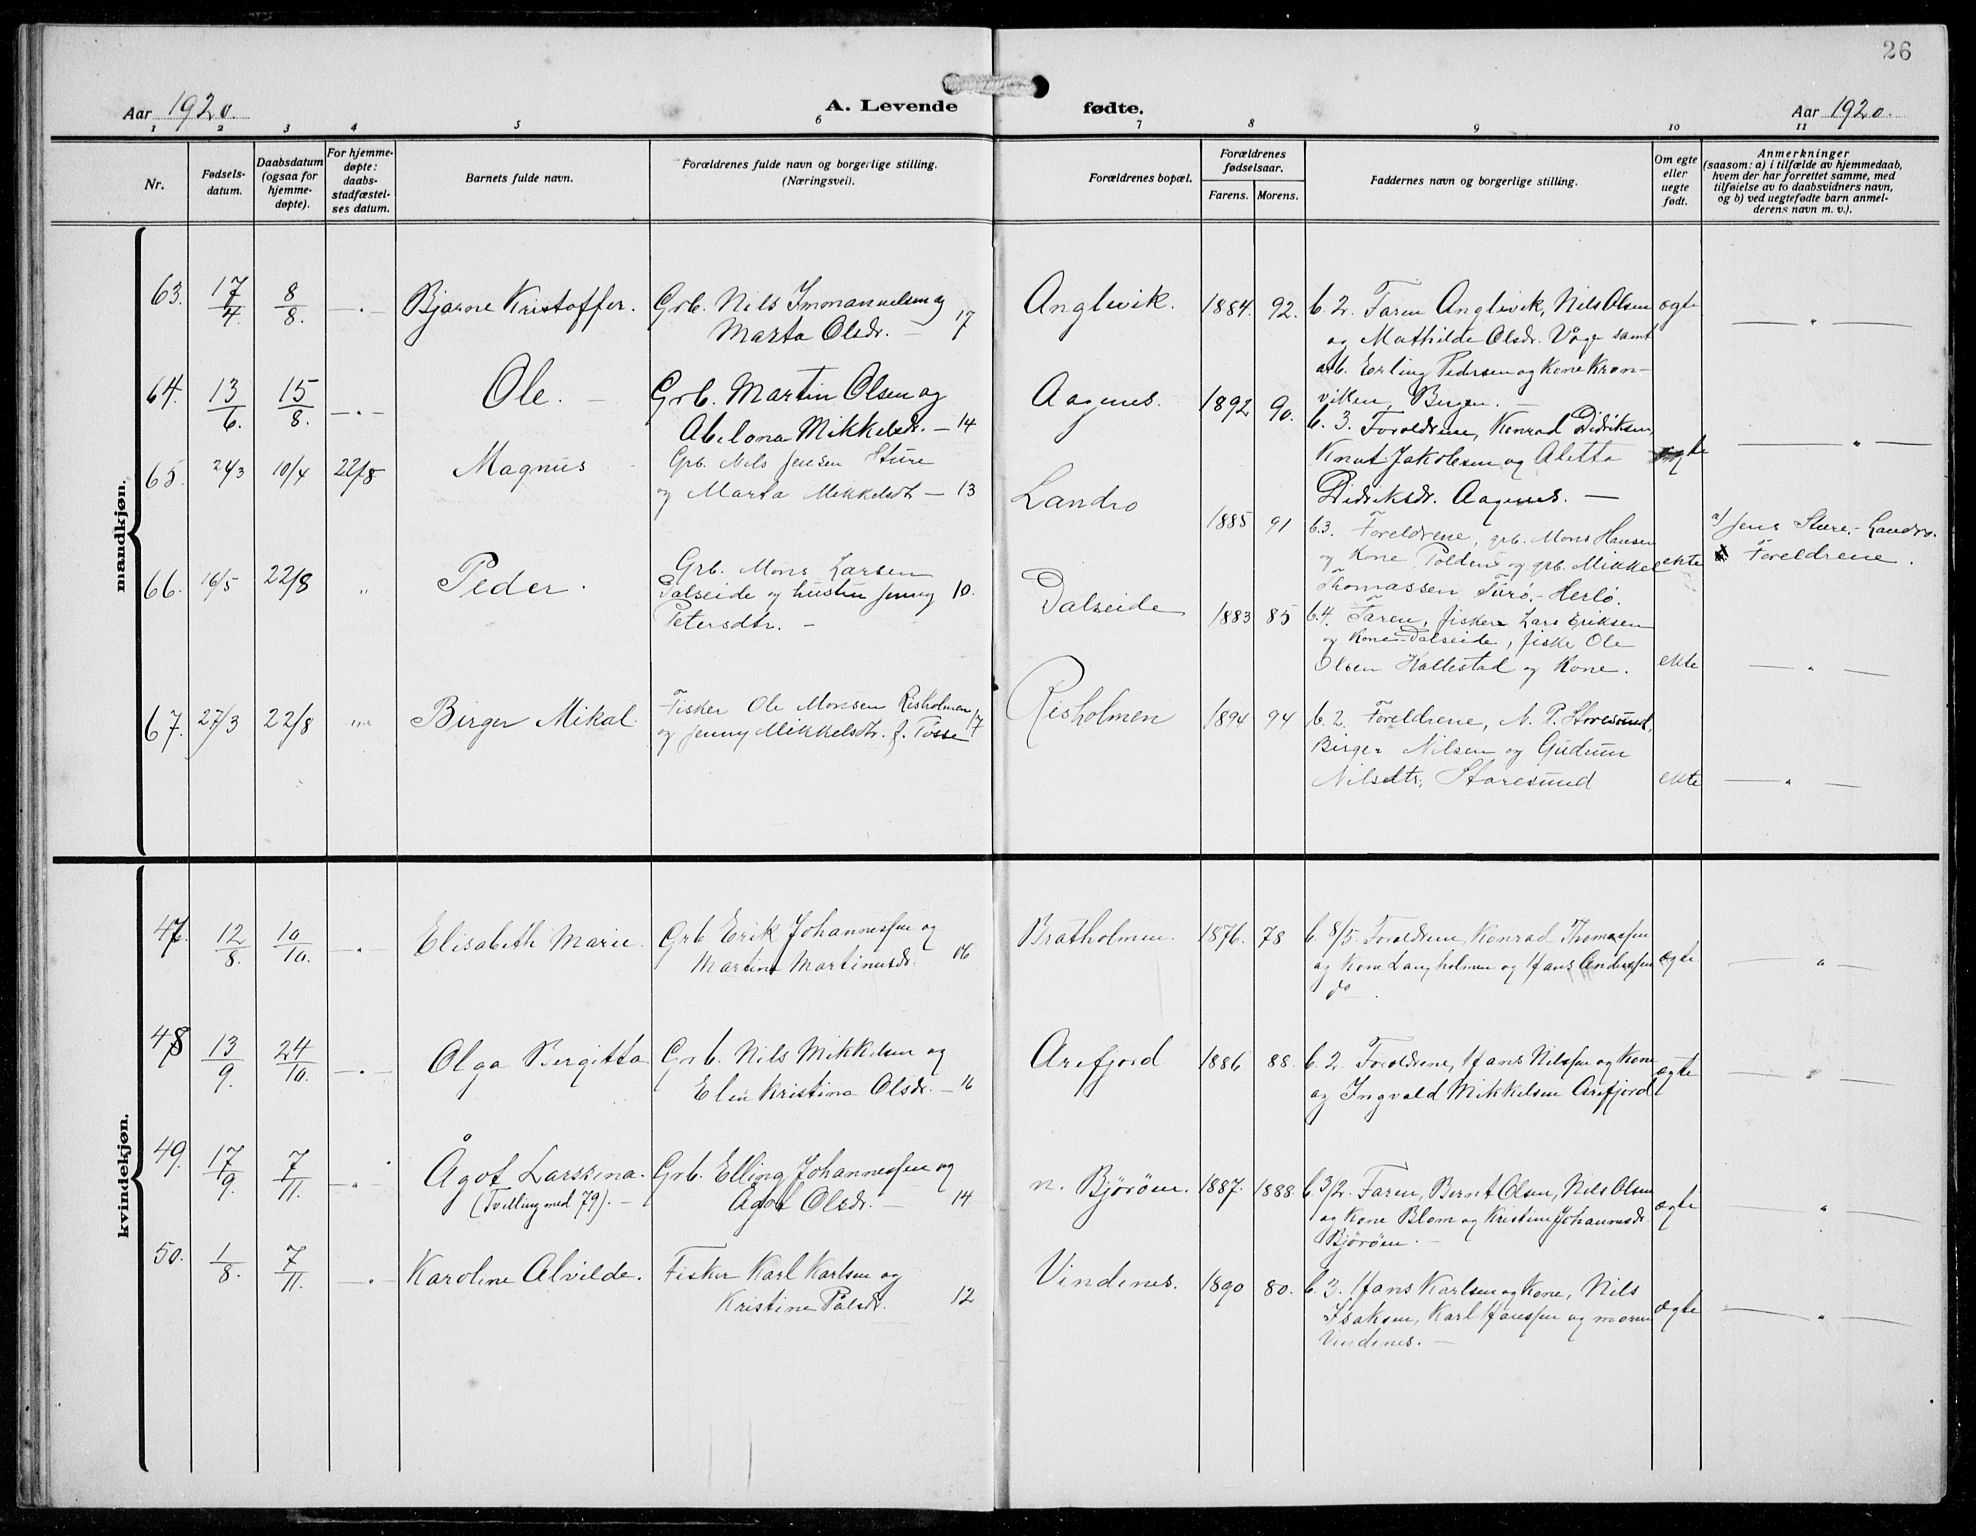 26
Aar 1920.
A. Levende fødte.
Aar 1920.
1 2 3 4 5 6 7 8 9 10 11
Nr.
Fødsels-
datum.
Daabsdatum
(ogsaa for
hjemme-
døpte).
For hjemme-
døpte:
daabs-
stadfæstel-
ses datum.
Barnets fulde navn.
Forældrenes fulde navn og borgerlige stilling.
(Næringsvei).
Forældrenes bopæl.
Forældrenes
fødselsaar.
Farens. Morens.
Faddernes navn og borgerlige stilling.
Om egte
eller
uegte
født.
Anmerkninger
(saasom: a) i tilfælde av hjemmedaab,
hvem der har forrettet samme, med
tilføielse av to daabsvidners navn,
og b) ved uegtefødte barn anmel-
derens navn m. v.).
mandkjøn.
63. 17/4. 8/8. —„— Bjarne Kristoffer. Grb. Nils Immanuelsen og
Marta Olsdr. — 17
Anglevik. 1884. 92. b. 2. Faren Anglevik, Nils Olsen
og Mathilde Olsdr. Våge samt
arb. Erling Pedersen og Kone Kron-
viken, Bergen. —
ægte —„—
64. 13/6. 15/8. —„— Ole. — Grb. Martin Olsen og
Abelona Mikkelsdr. — 14
Aagnes. 1892 90. b. 3. Foreldrene, Konrad Didriksen,
Knut Jakobsen og Aletta
Didriksdr. Aagnes. —
ægte —„—
65. 24/3 10/4 22/8 Magnus Grb. Nils Jensen Sture
og Marta Mikkelsdtr — 13
Landro 1885 91 b.3. Foreldrene, grb. Mons Hansen
og Kone Tolden og grb. Mikkel
Thomassen Turø, Herlø.
ekte a/ Jens Sture, Landro.
Foreldrene.
66. 16/5 22/8 „ Peder. Grb. Mons Larsen
Dalseide og hustru Jenny 10.
Petersdtr. —
Dalseide 1883 85 b.4. Faren, fisker Lars Eriksen
og Kone Dalseide, fisker Ole
Olsen Hallestad og Kone.
ekte —„—
67. 27/3 22/8 „ Birger Mikal. Fisker Ole Monsen Risholmen
og Jenny Mikkelsdtr. f. Tosse 17
Risholmen 1894 94 b. 2. Foreldrene, N. P. Storesund,
Birger Nilsen og Gudrun
Nilsdtr, Storesund
ekte —„—
kvindekjøn.
47. 12/8. 10/10. —„— Elisabeth Marie. Grb Erik Johannessen og
Martina Martinusdr. 06
Bratholmen. 1876. 78 b. 8/5. Foreldrene, Konrad Thomassen
og Kone Langholmen og Hans Anderssen
do.
ægte —„—
48 13/9. 24/10. —„— Olga Bergitta Grb. Nils Mikkelsen og
Elen Kristina Olsdr. — 16
Arefjord 1886 88. b. 2. Foreldrene, Hans Nilssen og Kone
og Ingvald Mikkelsen Arefjord
ægte —„—
49. 17/9. 7/11. —„— Ågot Larssina. Grb. Elling Johannessen og
(Tvilling med 79). — Ågot Olsdr. — 14
n. Bjørøen. 1887. 1888. b. 3/2. Faren, Bernt Olsen, Nils Olsen
og Kone Blom og Kristine Johannesdr.
Bjørøen. —
ægte —„—
50. 1/8. 7/11. —„— Karoline Alvilde. Fisker Karl Karlsen og
Kristina Pålsdr. 12
Vindenes. 1890 80. b. 3. Hans Karlsen og Kone, Nils
Isaksen, Karl Hanssen og moren
Vindenes. —
ægte —„—